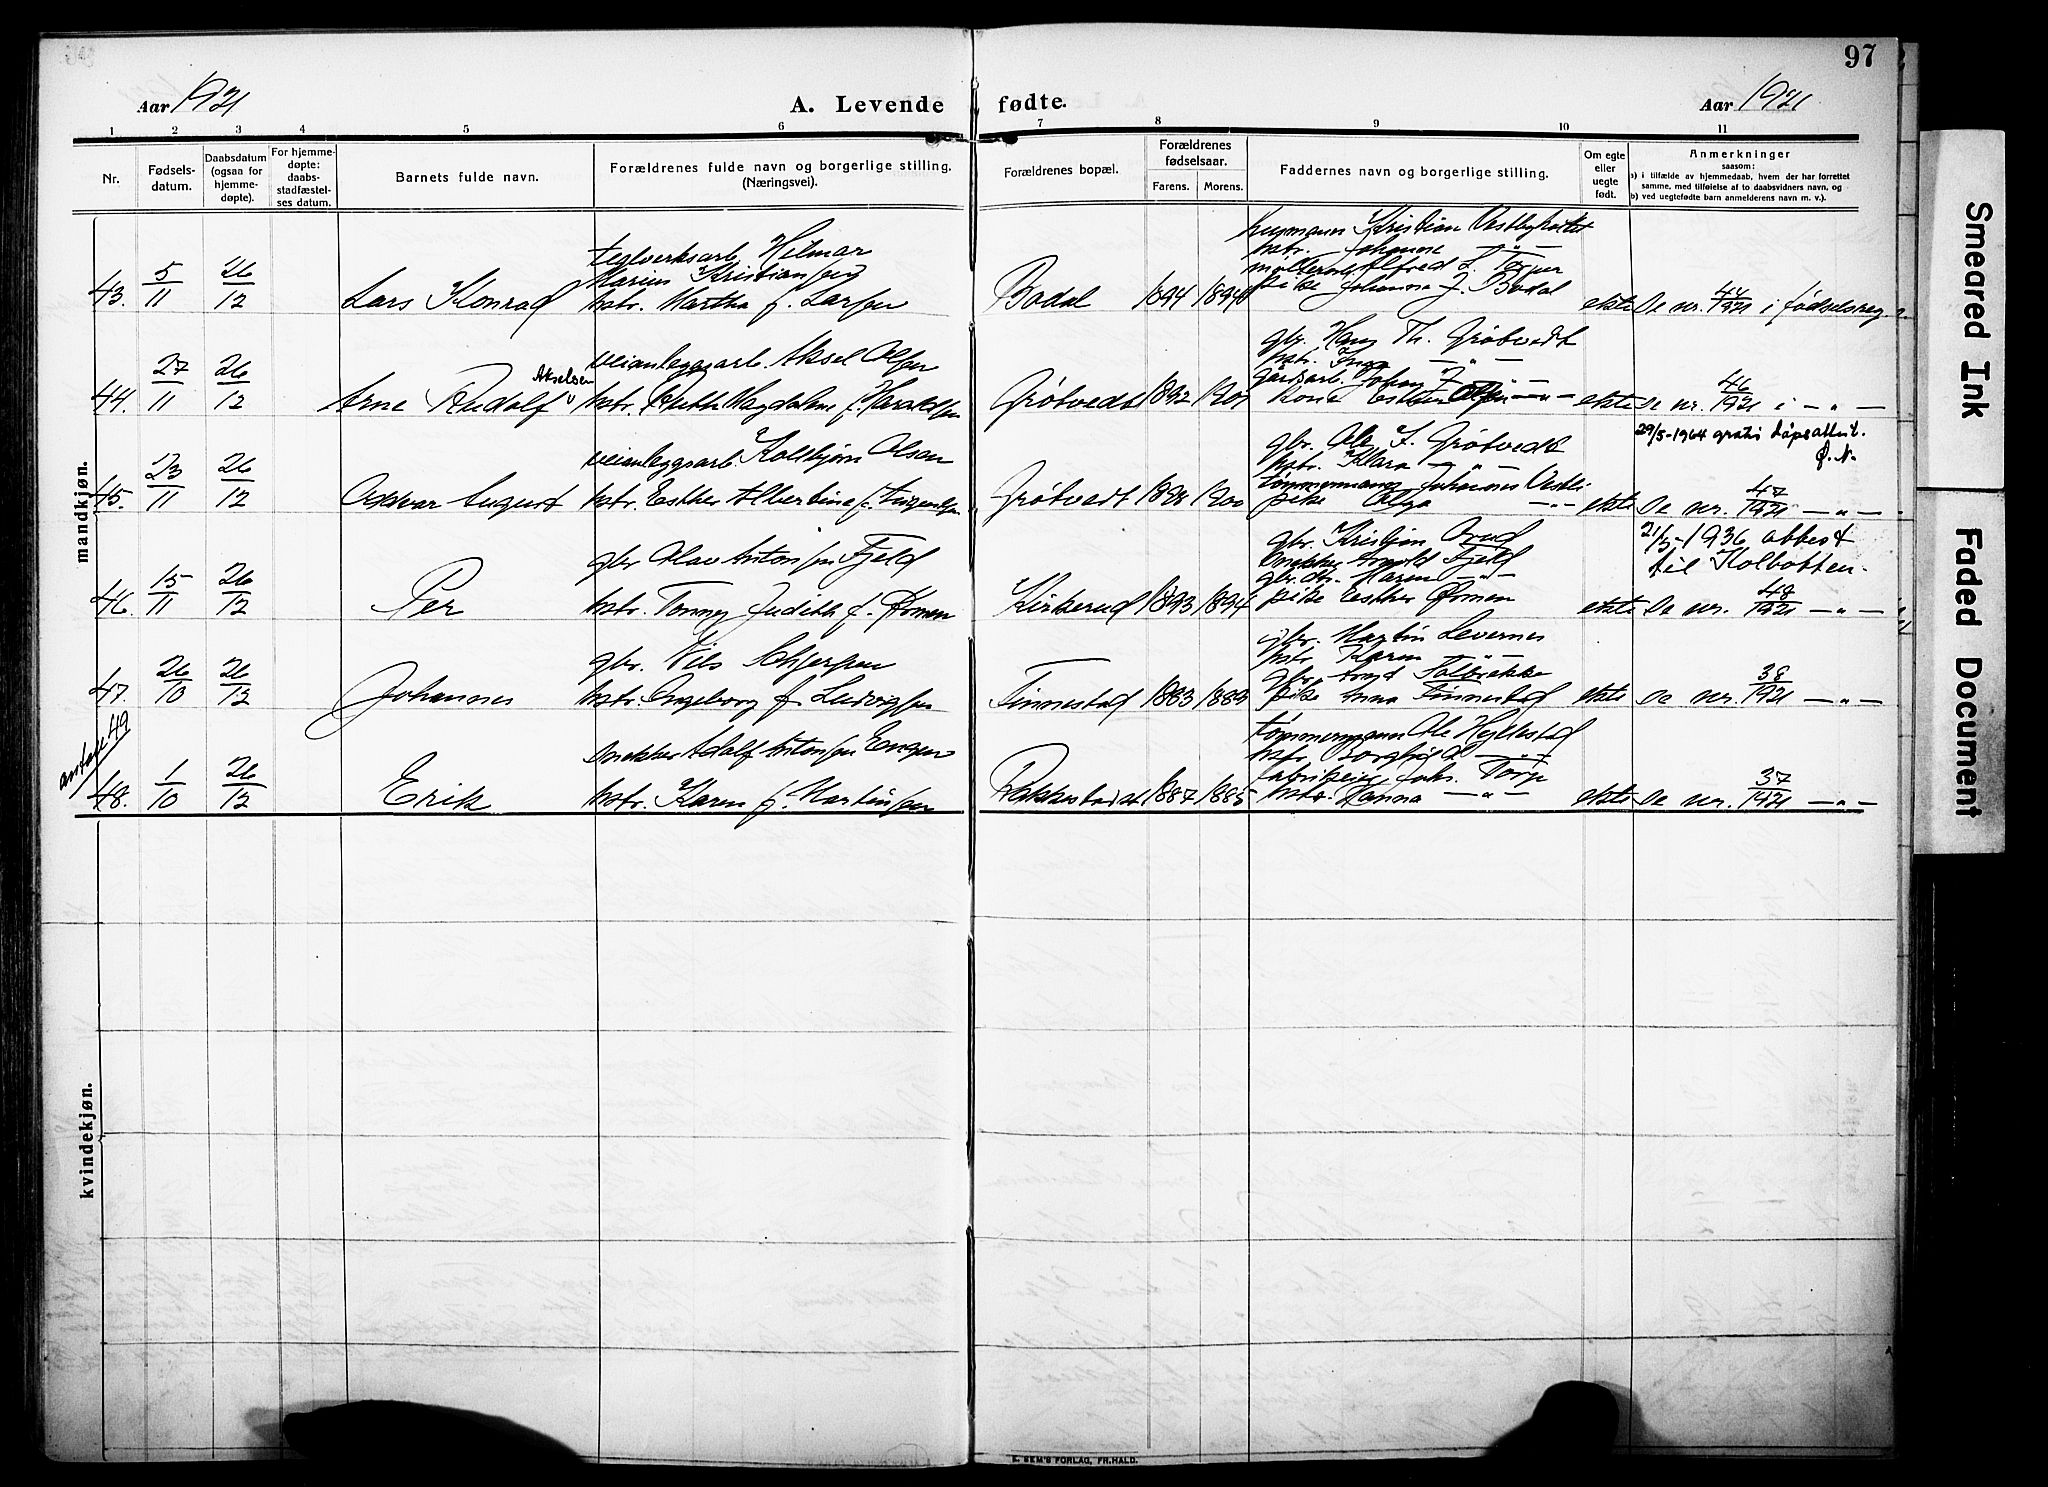 97
Aar 1921 A. Levende fødte. Aar 1921
1 2 3 4 5 6 7 8 9 10 11
Nr.
Fødsels-
datum.
Daabsdatum
(ogsaa for
hjemme-
døpte).
For hjemme-
døpte:
daabs-
stadfæstel-
ses datum.
Barnets fulde navn.
Forældrenes fulde navn og borgerlige stilling.
(Næringsvei).
Forældrenes bopæl.
Forældrenes
fødselsaar.
Farens. Morens.
Faddernes navn og borgerlige stilling.
Om egte
eller
uegte
født.
Anmerkninger
saasom:
a) i tilfælde av hjemmedaab, hvem der har forrettet
samme, med tilføielse af to daabsvidners navn, og
b) ved uegtefødte barn anmelderens navn m. v.).
mandkjøn.
43. 5/11 26/12 Lars Konrad
teglverksarb. Hilmar
Marius Kristiansen
hstr. Martha f. Larsen
Bodal 1894 1894
Kristian Vestbyhaket
hstr. Johanne — " —
Alfred L. Torper
pike Johanna J. Bodal
ekte Se nr. 44/1921 i fødselsreg.
44. 27/11 26/12 Arne Rudolf Akselsen
veianleggsarb. Aksel Olsen
hstr. Ruth Magdalene f. Haraldsen
Grøtvedt 1892 1901
gbr. Hans Th. Grøtvedt
hstr. Inga — " —
gårdsarb. Johan J. — " —
Kone Esther Olsen — " —
ekte Se nr. 46/1921 i — " —
29/5-1964 gratis dåpsattest.
Ø. N.
45. 23/11 26/12 Oddvar August
veianleggsarb. Kolbjørn Olsen
hstr. Esther Albertine f. Jørgensen
Grøtvedt 1898 1900
gbr. Ole J. Grøtvedt
hstr. Klara — " —
tømmermann Johannes Østli
pike Olga — " —
ekte Se nr. 47/1921 — " —
46. 15/11 26/12 Per
gbr. Olav Antonsen Fjeld
hstr. Tonny Judith f. Ømen
Kirkerud 1893 1894
gbr. Kristian Brud
snekker Arnold Fjeld
gbr.dtr. Karen — " —
pike Esther Ømen
21/3-1936 attest
til Kolbotten.
ekte Se nr. 48/1921 — " —
47. 26/10 26/12 Johannes
gbr. Nils Asbjørnsen
hstr. Ingeborg f. Ludvigsen
Finnestad 1883 1889
gbr. Martin Levernes
hstr. Karen — " —
gbr. Arnt Solbrekke
pike Anna Finnestad
ekte Se nr. 38/1921 — " —
antall 49
48. 1/10 26/12 Erik
snekker Adolf Antonsen Engen
hstr. Karen f. Martinsen
Rakkestad 1887 1885
tømmermann Ole Heglestad
hstr. Borghild — " —
fabrikeier Johs. Torp
hstr. Hanna — " —
ekte Se nr. 37/1921 — " —
kvindekjøn.
E. SEM'S FORLAG, FR.HALD.
Smeared Ink
Faded Document